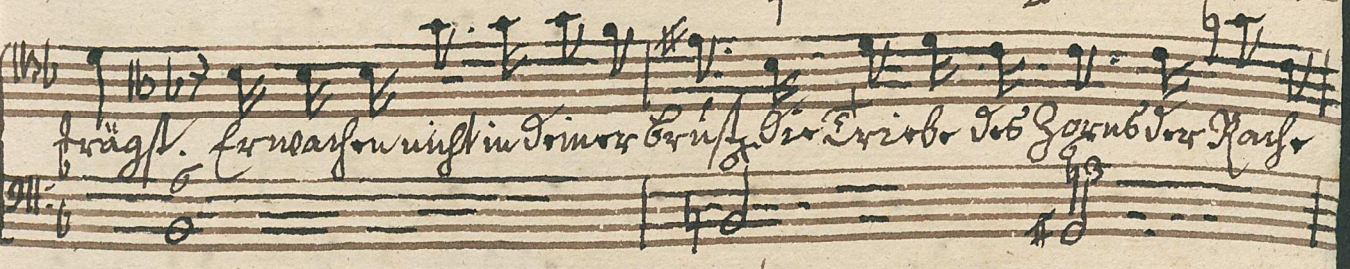 trägst. Erwachen nicht in deiner brust, die Triebe des Zorns der Rache
6 6 6 3